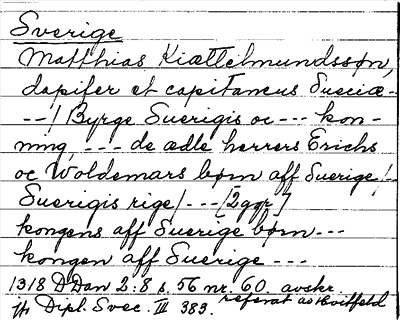 Sverige
Matthias Kiættelmundssøn,
dapifer et capitaneus Sueciæ --
--/ Byrge Suerigis oc --- kon-
ning, --- de ædle herrers Erichs
oc Woldemars børn aff Suerige/-
Suerigis rige/ --- [2ggr]
kongens aff Suerige børn ---
kongen aff Suerige ---
1318 DDan 2:8 s. 56 nr. 60. avskr.
jfr Dipl. Svec. III 383. referat as Hvitfeld